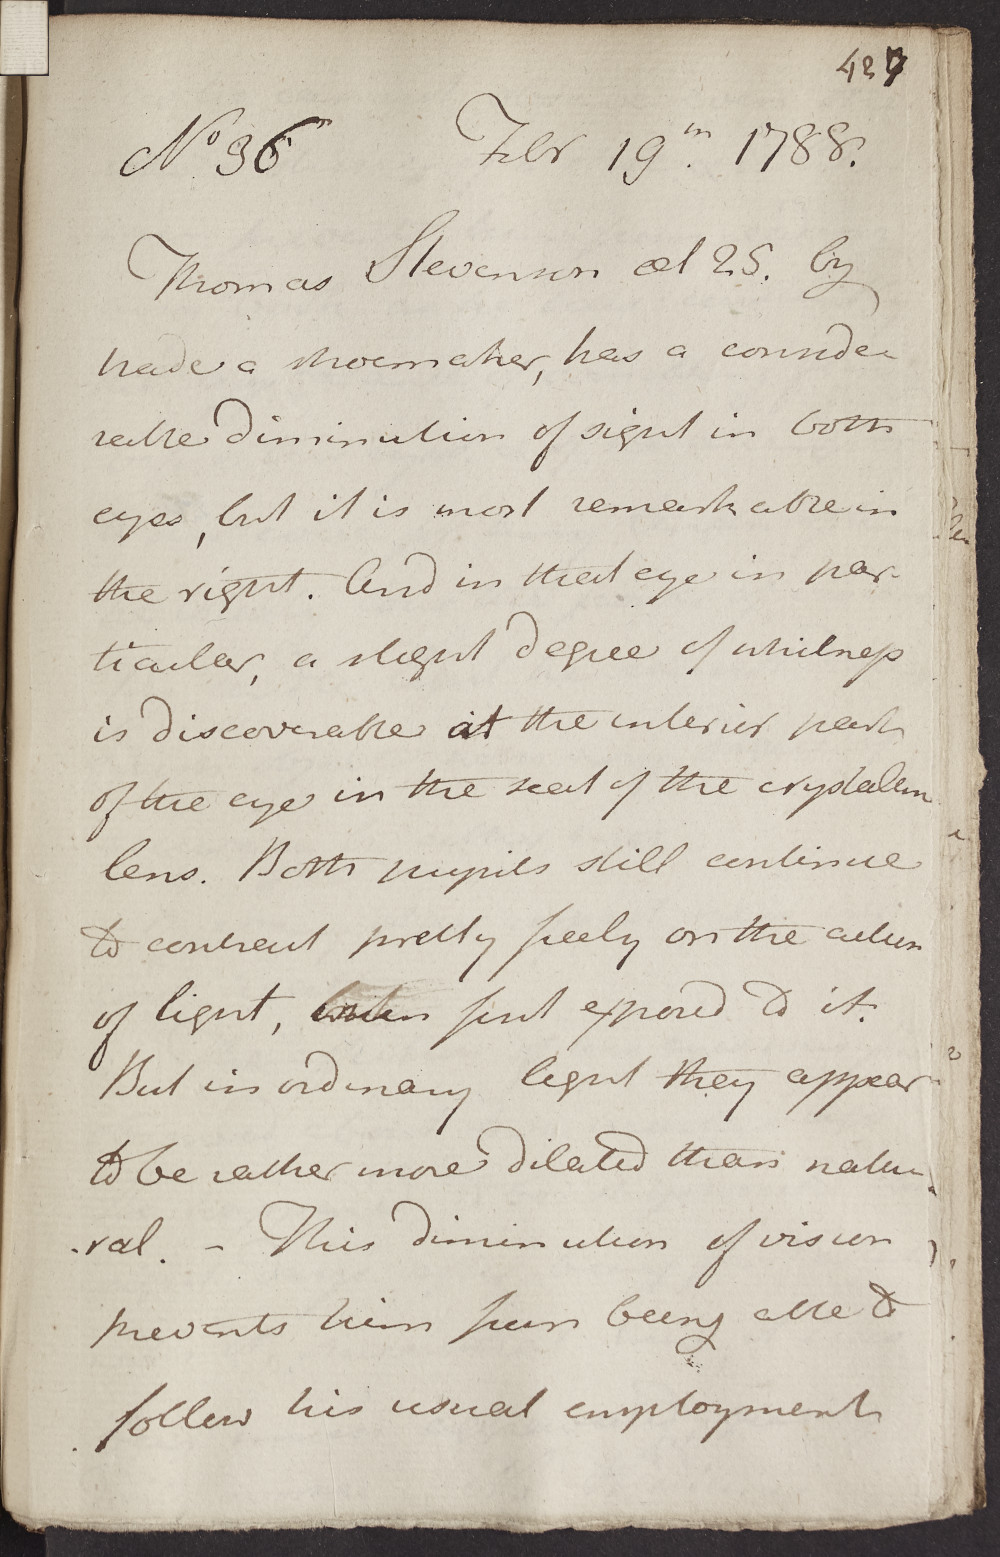 427
No 36 Febr 19th. 1788.
Thomas Stevenson æt 25. by
trade a shoemaker, has a conside
rable Diminution of sight in both
eyes, but it is most remarkable in
the right. And in that eye in par-
ticular, a slight degree of whitness
is discoverable at the interior part
of the eye in the seat of the crystalin
lens. Both pupils still continue
to contract pretty freely on the action
of light, when first exposed to it.
But in ordinary light they appear
to be rather more dilated than natu-
-ral. - This diminution of vision
prevents him from being able to
follow his usual employment